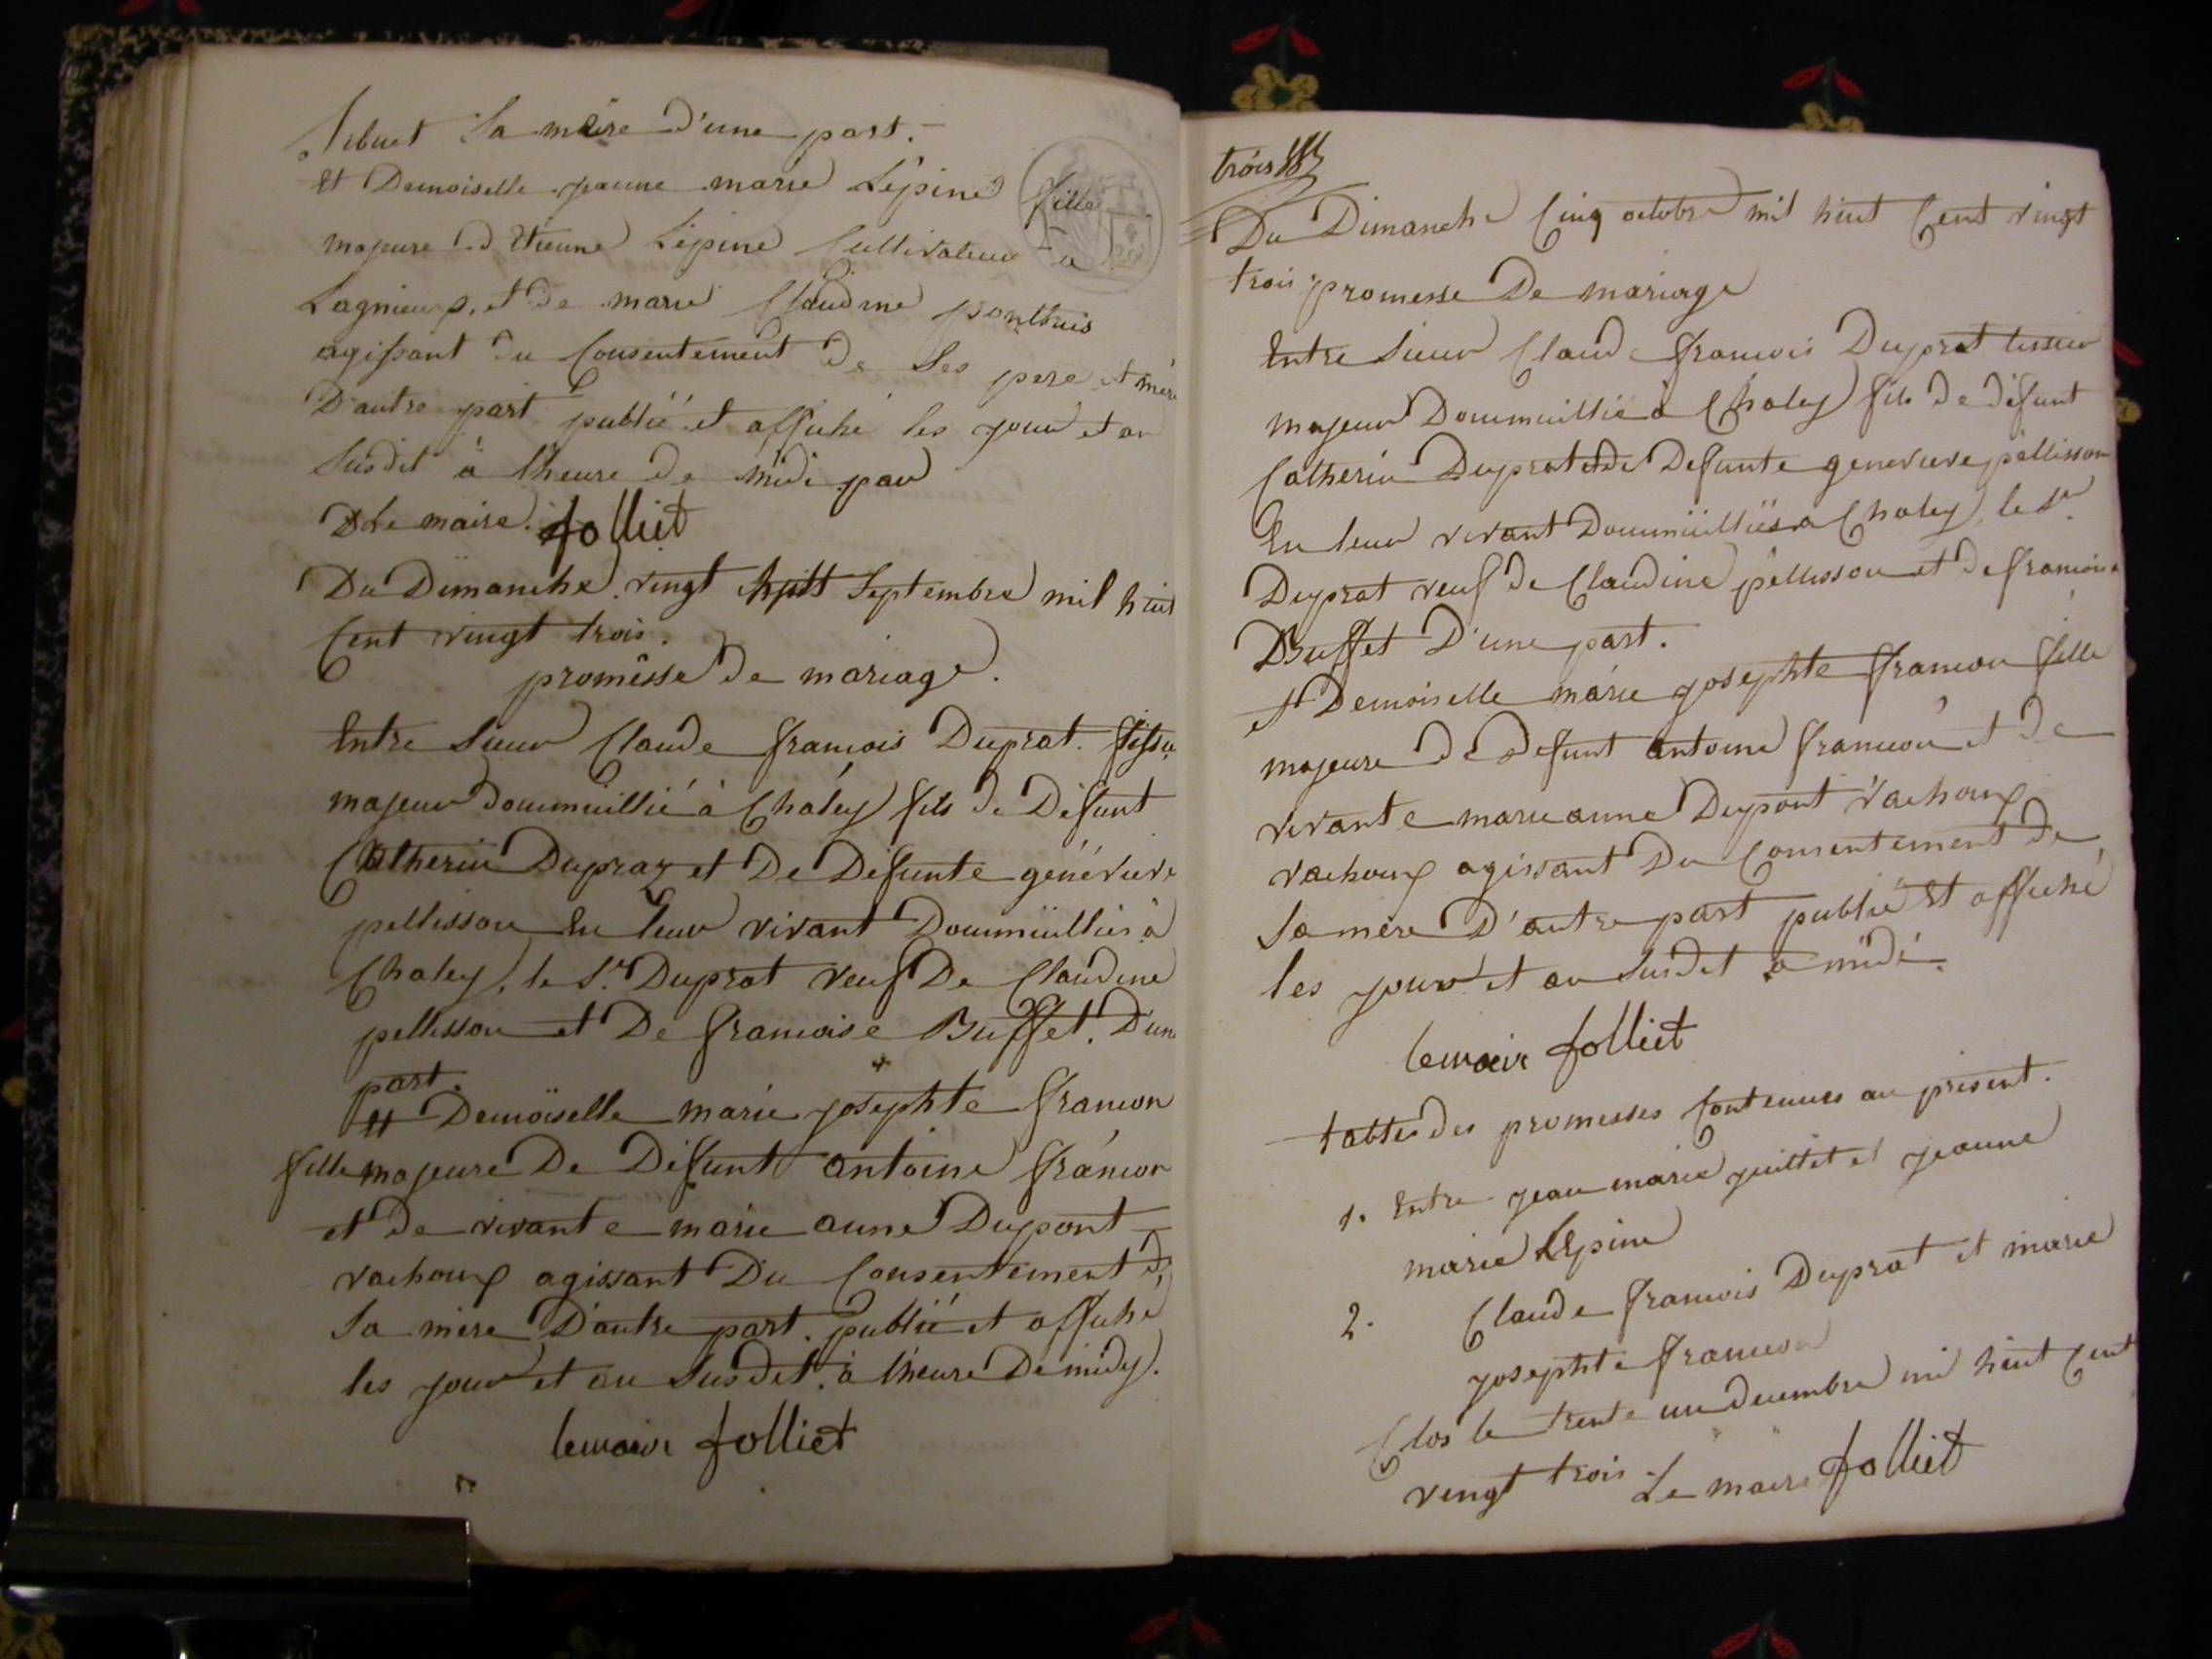 Tibuet Sa mère D'une part.
Et Demoiselle jeanne marie Lépine fille
majeure d'Etienne Lépine Cultivateur a
Lagnieux, et de marie Claudine ponthus
agissant du Consentement de Ses pere et mère
D'autre part publié et affiché les jour et an
Susdit à l'heure de midi par
Le maire. folliet
Du Dimanche vingt huitt Septembre mil huit
Cent vingt trois.
promesse de mariage.
Entre Sieur Claude francois Duprat. tissu
majeur doummuillié à Chaley fils de Défunt
Catherin Dupraz et De Defunte génévieve
pellisson En leur vivant Doummuilliés à
Chaley, le Sr. Duprat veuf De Claudine
pellisson et De francoise Buffet. D'une
part.
Et Demoiselle marie josephte francon
fille majeure De Défunt antoine francon
et de vivante marie anne Dupont
vachoux agissant Du Consentement de
Sa mère D'autre part. publié et affiché
les jour et an Susdit. à l'heure De midy.
lemaire folliet
trois
Du Dimanche Cinq octobre mil huit Cent vingt
trois promesse De mariage
Entre Sieur Claude francois Duprat tissieur
majeur Doummuillié à Chaley fils de défunt
Catherin Duprat et de Defunte genevieve pellisson
En leur vivant Doummuilliés a Chaley, le Sr
Duprat veuf de Claudine pellisson et de francoise
Buffet D'une part.
et Demoiselle marie josephte francon fille
majeure de Defunt antoine francon et de
vivante marie anne Dupont vachoux
vachoux agissant Du Consentement de
Sa mère D'autre part publié Et affiché
les jour et an Susdit a midi.
lemaire folliet
tables des promesses Contenues au présent.
1. Entre jean marie juillet et jeanne
marie Lépine
2. Claude francois Duprat et marie
josephte francon
Clos le trente un decembre mil huit Cent
vingt trois Le maire folliet